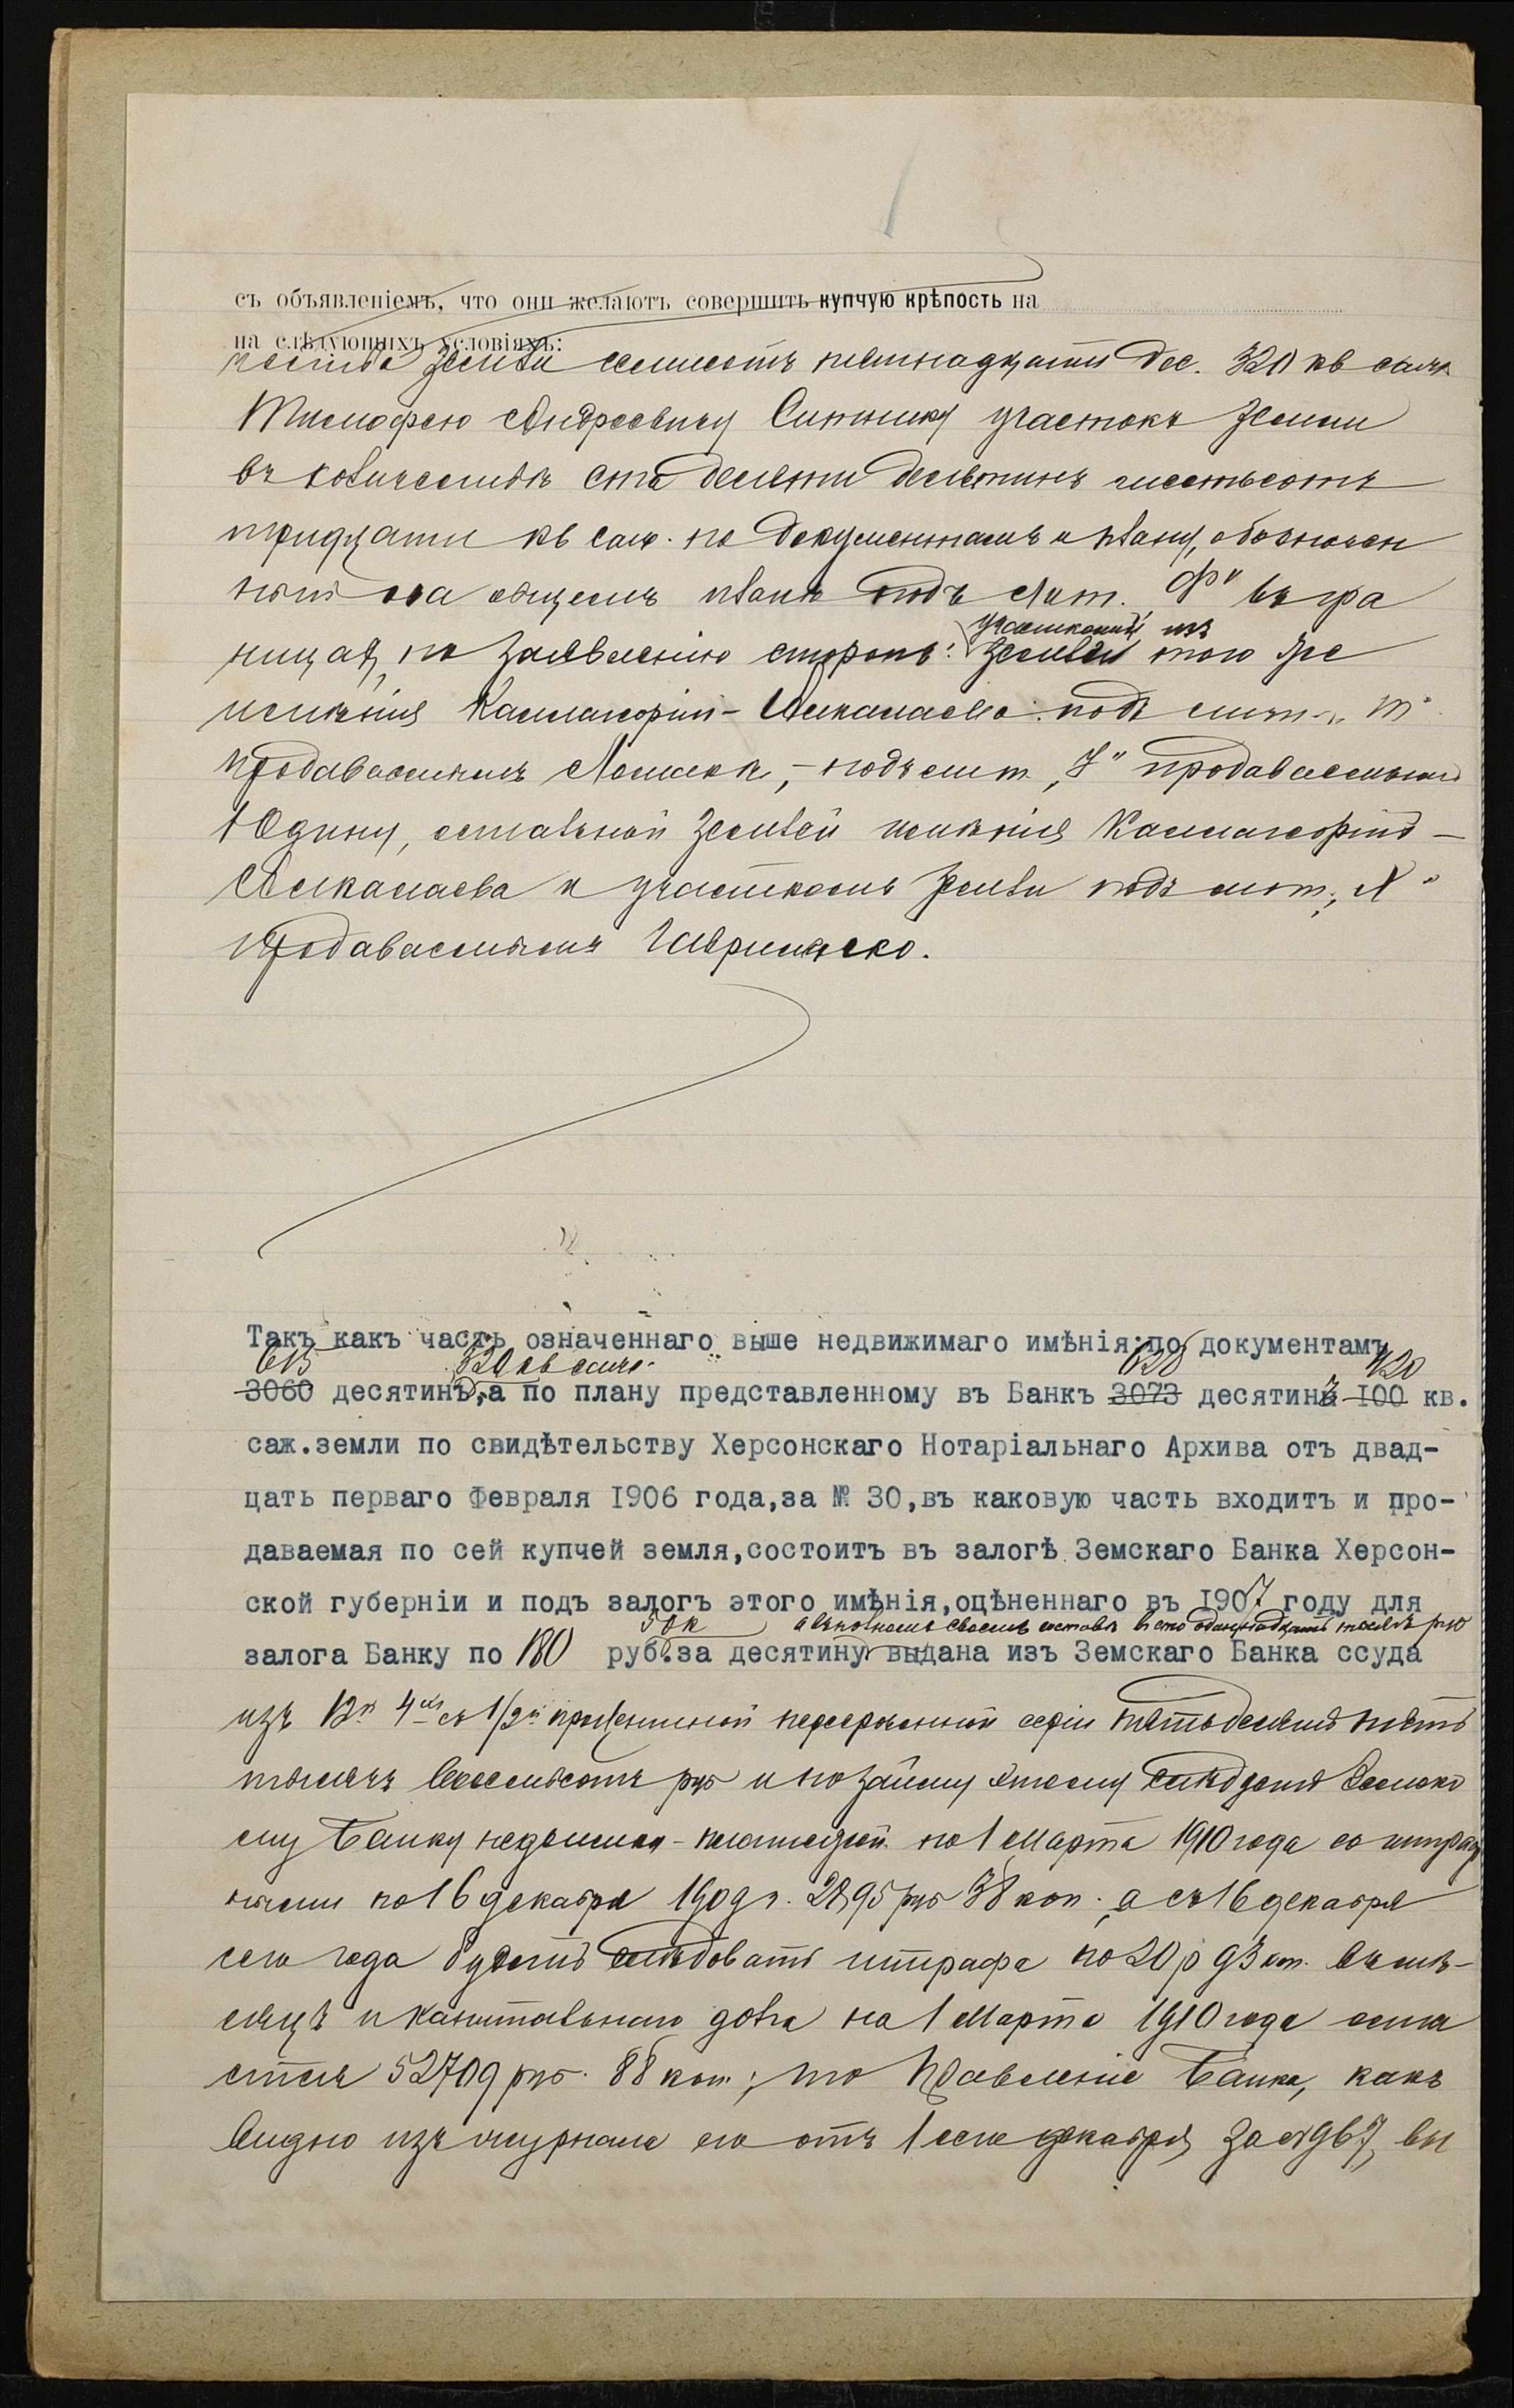 съ объявленіемъ, что они желаютъ совершить купчую крѣпость на
на слѣдующихъ условіяхъ:
земли семисотъ пятнадцати дес. 320 кв саж
Тимофею Андреевичу Ситнику участокъ земли
въ количествѣ ста десяти десятинъ шестьсотъ
тридцати кв саж. по документамъ и плану, обозначен
ный на общемъ планѣ подъ лит. Ф" въ гра
участкомъ изъ
ницахъ, по заявленію сторонъ: землей того же
имѣнія подъ лит. "Т"
продаваемымъ подъ лит. продаваемымъ
Юдину, остальной землей имѣнія
и участкомъ земли подъ лит. "Х"
продаваемымъ Гавриленко.
Такъ какъ часть означеннаго выше недвижимаго имѣнія: по документамъ
615 320 кв саж. 620 420
3060 десятинъ, а по плану представленному въ Банкъ 3073 десятинъ 100 кв.
саж. земли по свидѣтельству Херсонскаго Нотаріальнаго Архива отъ двад-
цать перваго Февраля 1906 года, за № 30, въ каковую часть входитъ и про-
даваемая по сей купчей земля, состоитъ въ залогѣ Земскаго Банка Херсон-
ской губерніи и подъ залогъ этого имѣнія, оцѣненнаго въ 1907 году для
50 к а въ полномъ своемъ составѣ въ сто одиннадцать тысячъ руб
залога Банку по 180 руб. за десятину выдана изъ Земскаго Банка ссуда
изъ 12й 4хъ съ 1/2й процентной серіи пятьдесятъ пять
тысячъ восемьсотъ руб и по займу этому слѣдуетъ Земско
му Банку недоимки - на 1 Марта 1910 года со штраф
ными по 16 декабря 1909 г. 2895 руб 38 коп. а съ 16 декабря
сего года будетъ слѣдовать штрафа по 20 р 93 коп. въ мѣ-
сяцъ и капитальнаго долга на 1 Марта 1910 года оста
ется 52709 руб. 88 коп.; то Правленіе Банка, какъ
видно изъ журнала его отъ 1 сего декабря за № 967, вы